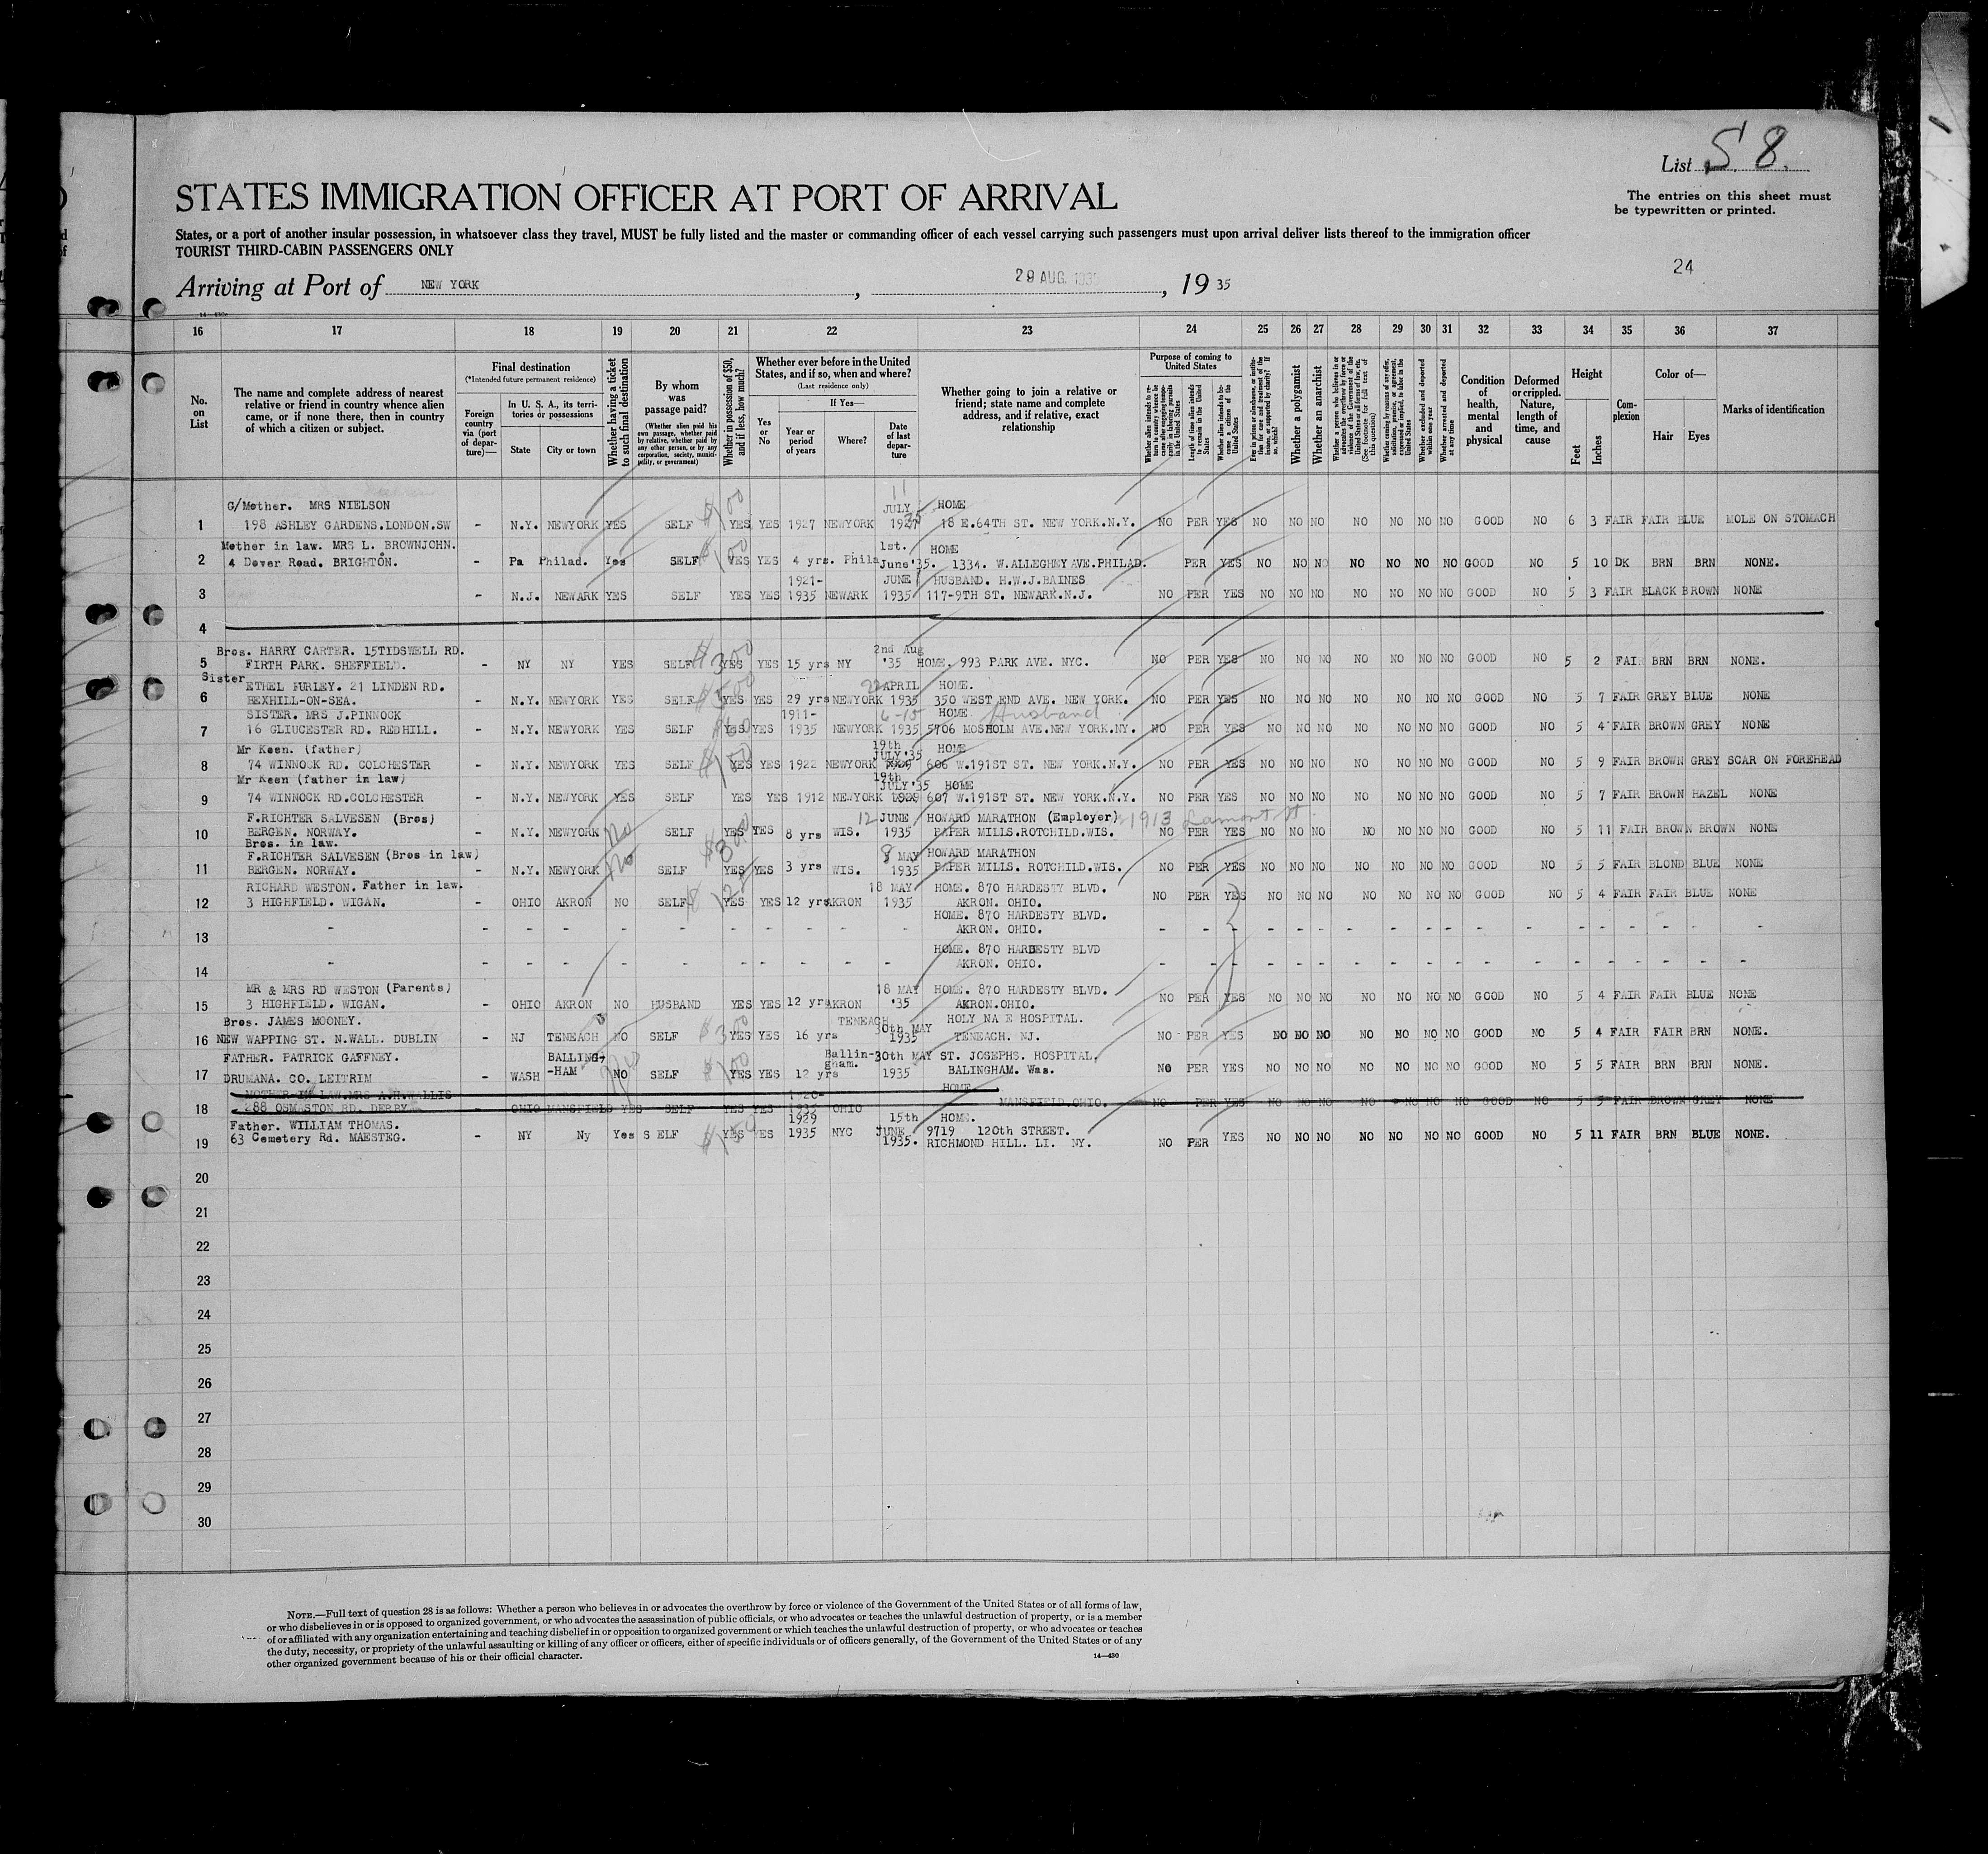 List 58.
STATES IMMIGRATION OFFICER AT PORT OF ARRIVAL
The entries on this sheet must
be typewritten or printed.
States, or a port of another insular possession, in whatsoever class they travel, MUST be fully listed and the master or commanding officer of each vessel carrying such passengers must upon arrival deliver lists thereof to the immigration officer
TOURIST THIRD-CABIN PASSENGERS ONLY
24
Arriving at Port of NEW YORK, 29 AUG. 1935, 1935
16 17 18 19 20 21 22 23 24 25 26 27 28 29 30 31 32 33 34 35 36 37
No. on List
The name and complete address of nearest relative or friend in country whence alien came, or if none there, then in country of which a citizen or subject.
Final destination
(*Intended future permanent residence)
Foreign country via (port of departure)—
In U. S. A., its territories or possessions
State
City or town
Whether having a ticket to such final destination
By whom was passage paid?
(Whether alien paid his own passage, whether paid by relative, whether paid by any other person, or by any corporation, society, municipality, or government)
Whether in possession of $50, and if less, how much?
Whether ever before in the United States, and if so, when and where?
(Last residence only)
Yes or No
If Yes—
Year or period of years
Where?
Date of last departure
Whether going to join a relative or friend; state name and complete address, and if relative, exact relationship
Purpose of coming to United States
Length of time alien intends to remain in the United States
Whether alien intends to become a citizen of the United States
Whether a polygamist
Whether an anarchist
Whether excluded and deported within one year
Whether arrested and deported at any time
Condition of health, mental and physical
Deformed or crippled. Nature, length of time, and cause
Height
Feet
Inches
Complexion
Color of—
Hair
Eyes
Marks of identification
G/Mother. MRS NIELSON $100 11 JULY HOME
1 198 ASHLEY GARDENS.LONDON.SW - N.Y. NEWYORK YES SELF YES YES 1927 NEWYORK 18 E.64TH ST. NEW YORK.N.Y. NO PER YES NO NO NO NO NO NO NO GOOD NO 6 3 FAIR FAIR BLUE MOLE ON STOMACH
Mother in law. MRS L. BROWNJOHN. $100 1st. HOME
2 4 Dover Road. BRIGHTON. - Pa Philad. Yes SELF YES YES 4 yrs. Phila June'35. 1334. W.ALLEGHEYAVE.PHILAD. PER YES NO NO NO NO NO NO NO GOOD NO 5 10 DK BRN BRN NONE.
1921- JUNE HUSBAND. H.W.J.BAINES
3 - N.J. NEWARK YES SELF YES YES 1935 NEWARK 1935 117-9TH ST. NEWARK.N.J. NO PER YES NO NO NO NO NO NO NO GOOD NO 5 3 FAIR BLACK BROWN NONE
4
Bros. HARRY CARTER. 15TIDSWELL RD. $300 2nd Aug
5 FIRTH PARK. SHEFFIELD. - NY NY YES SELF YES YES 15 yrs NY '35 HOME. 993 PARK AVE. NYC. NO PER YES NO NO NO NO NO NO NO GOOD NO 5 2 FAIR BRN BRN NONE.
Sister
ETHEL HURLEY. 21 LINDEN RD. $500 22 APRIL HOME.
6 BEXHILL-ON-SEA. - N.Y. NEWYORK YES SELF YES YES 29 yrs NEWYORK 1935 350 WEST END AVE. NEW YORK. NO PER YES NO NO NO NO NO NO NO GOOD NO 5 7 FAIR GREY BLUE NONE
SISTER. MRS J.PINNOCK $60 1911- 6-15 HOME Husband
7 16 GLIUCESTER RD. REDHILL. - N.Y. NEWYORK YES SELF YES YES 1935 NEWYORK 1935 5706 MOSHOLM AVE.NEW YORK.NY. NO PER YES NO NO NO NO NO NO NO GOOD NO 5 4 FAIR BROWN GREY NONE
Mr Keen. (father) $100 19th JULY'35 HOME
8 74 WINNOCK RD. COLCHESTER - N.Y. NEWYORK YES SELF YES YES 1922 NEWYORK 606 W.191ST ST. NEW YORK.N.Y. NO PER YES NO NO NO NO NO NO NO GOOD NO 5 9 FAIR BROWN GREY SCAR ON FOREHEAD
Mr Keen (father in law) 19th JULY'35 HOME
9 74 WINNOCK RD.COLCHESTER - N.Y. NEWYORK YES SELF YES YES 1912 NEWYORK 1929 607 W.191ST ST. NEW YORK.N.Y. NO PER YES NO NO NO NO NO NO NO GOOD NO 5 7 FAIR BROWN HAZEL NONE
F.RICHTER SALVESEN (Bros) 12 JUNE HOWARD MARATHON (Employer) 1913 Lamont St.
10 BERGEN. NORWAY. - N.Y. NEWYORK No SELF YES YES 8 yrs WIS. 1935 PAPER MILLS.ROTCHILD.WIS. NO PER YES NO NO NO NO NO NO NO GOOD NO 5 11 FAIR BROWN BROWN NONE
Bros. in law.
F.RICHTER SALVESEN (Bros in law) $300 8 MAY HOWARD MARATHON
11 BERGEN. NORWAY. - N.Y. NEWYORK No SELF YES YES 3 yrs WIS. 1935 PAPER MILLS. ROTCHILD.WIS. NO PER YES NO NO NO NO NO NO NO GOOD NO 5 5 FAIR BLOND BLUE NONE
RICHARD WESTON. Father in law. 18 MAY HOME. 870 HARDESTY BLVD.
12 3 HIGHFIELD. WIGAN. - OHIO AKRON NO SELF YES YES 12 yrs AKRON 1935 AKRON. OHIO. NO PER YES NO NO NO NO NO NO NO GOOD NO 5 4 FAIR FAIR BLUE NONE
HOME. 870 HARDESTY BLVD.
13 - - - - - - - - - - - AKRON. OHIO. - - - - - - - - - - - - - - - - - -
HOME. 870 HARDESTY BLVD
14 - - - - - - - - - - - AKRON. OHIO. - - - - - - - - - - - - - - - - - -
MR & MRS RD WESTON (Parents) 18 MAY HOME. 870 HARDESTY BLVD.
15 3 HIGHFIELD. WIGAN. - OHIO AKRON NO HUSBAND YES YES 12 yrs AKRON '35 AKRON.OHIO. NO PER YES NO NO NO NO NO NO NO GOOD NO 5 4 FAIR FAIR BLUE NONE
Bros. JAMES MOONEY. $300 TENEACH 30th MAY HOLY NA E HOSPITAL.
16 NEW WAPPING ST. N.WALL. DUBLIN - NJ TENEACH NO SELF YES YES 16 yrs 1935 TENEACH. NJ. NO PER YES NO NO NO NO NO NO NO GOOD NO 5 4 FAIR FAIR BRN NONE.
FATHER. PATRICK GAFFNEY. BALLING- $100 Ballin-gham. 30th MAY ST. JOSEPHS. HOSPITAL.
17 DRUMANA. CO. LEITRIM - WASH -HAM NO SELF YES YES 12 yrs 1935 BALINGHAM. Was. NO PER YES NO NO NO NO NO NO NO GOOD NO 5 5 FAIR BRN BRN NONE.
MOTHER IN LAW.MRS A.H.WALLIS 1920- HOME
18 288 OSMASTON RD. DERBY - OHIO MANSFIELD YES SELF YES YES 1935 OHIO MANSFIELD.OHIO. NO PER YES NO NO NO NO NO NO NO GOOD NO 5 5 FAIR BROWN GREY NONE
Father. WILLIAM THOMAS. $150 1929 15th HOME.
19 63 Cemetery Rd. MAESTEG. - NY Ny Yes S ELF YES YES 1935 NYC JUNE 1935. 9719 120th STREET. RICHMOND HILL. LI. NY. NO PER YES NO NO NO NO NO NO NO GOOD NO 5 11 FAIR BRN BLUE NONE.
20
21
22
23
24
25
26
27
28
29
30
NOTE.—Full text of question 28 is as follows: Whether a person who believes in or advocates the overthrow by force or violence of the Government of the United States or of all forms of law,
or who disbelieves in or is opposed to organized government, or who advocates the assassination of public officials, or who advocates or teaches the unlawful destruction of property, or is a member
of or affiliated with any organization entertaining and teaching disbelief in or opposition to organized government or which teaches the unlawful destruction of property, or who advocates or teaches
the duty, necessity, or propriety of the unlawful assaulting or killing of any officer or officers, either of specific individuals or of officers generally, of the Government of the United States or of any
other organized government because of his or their official character.
14—430